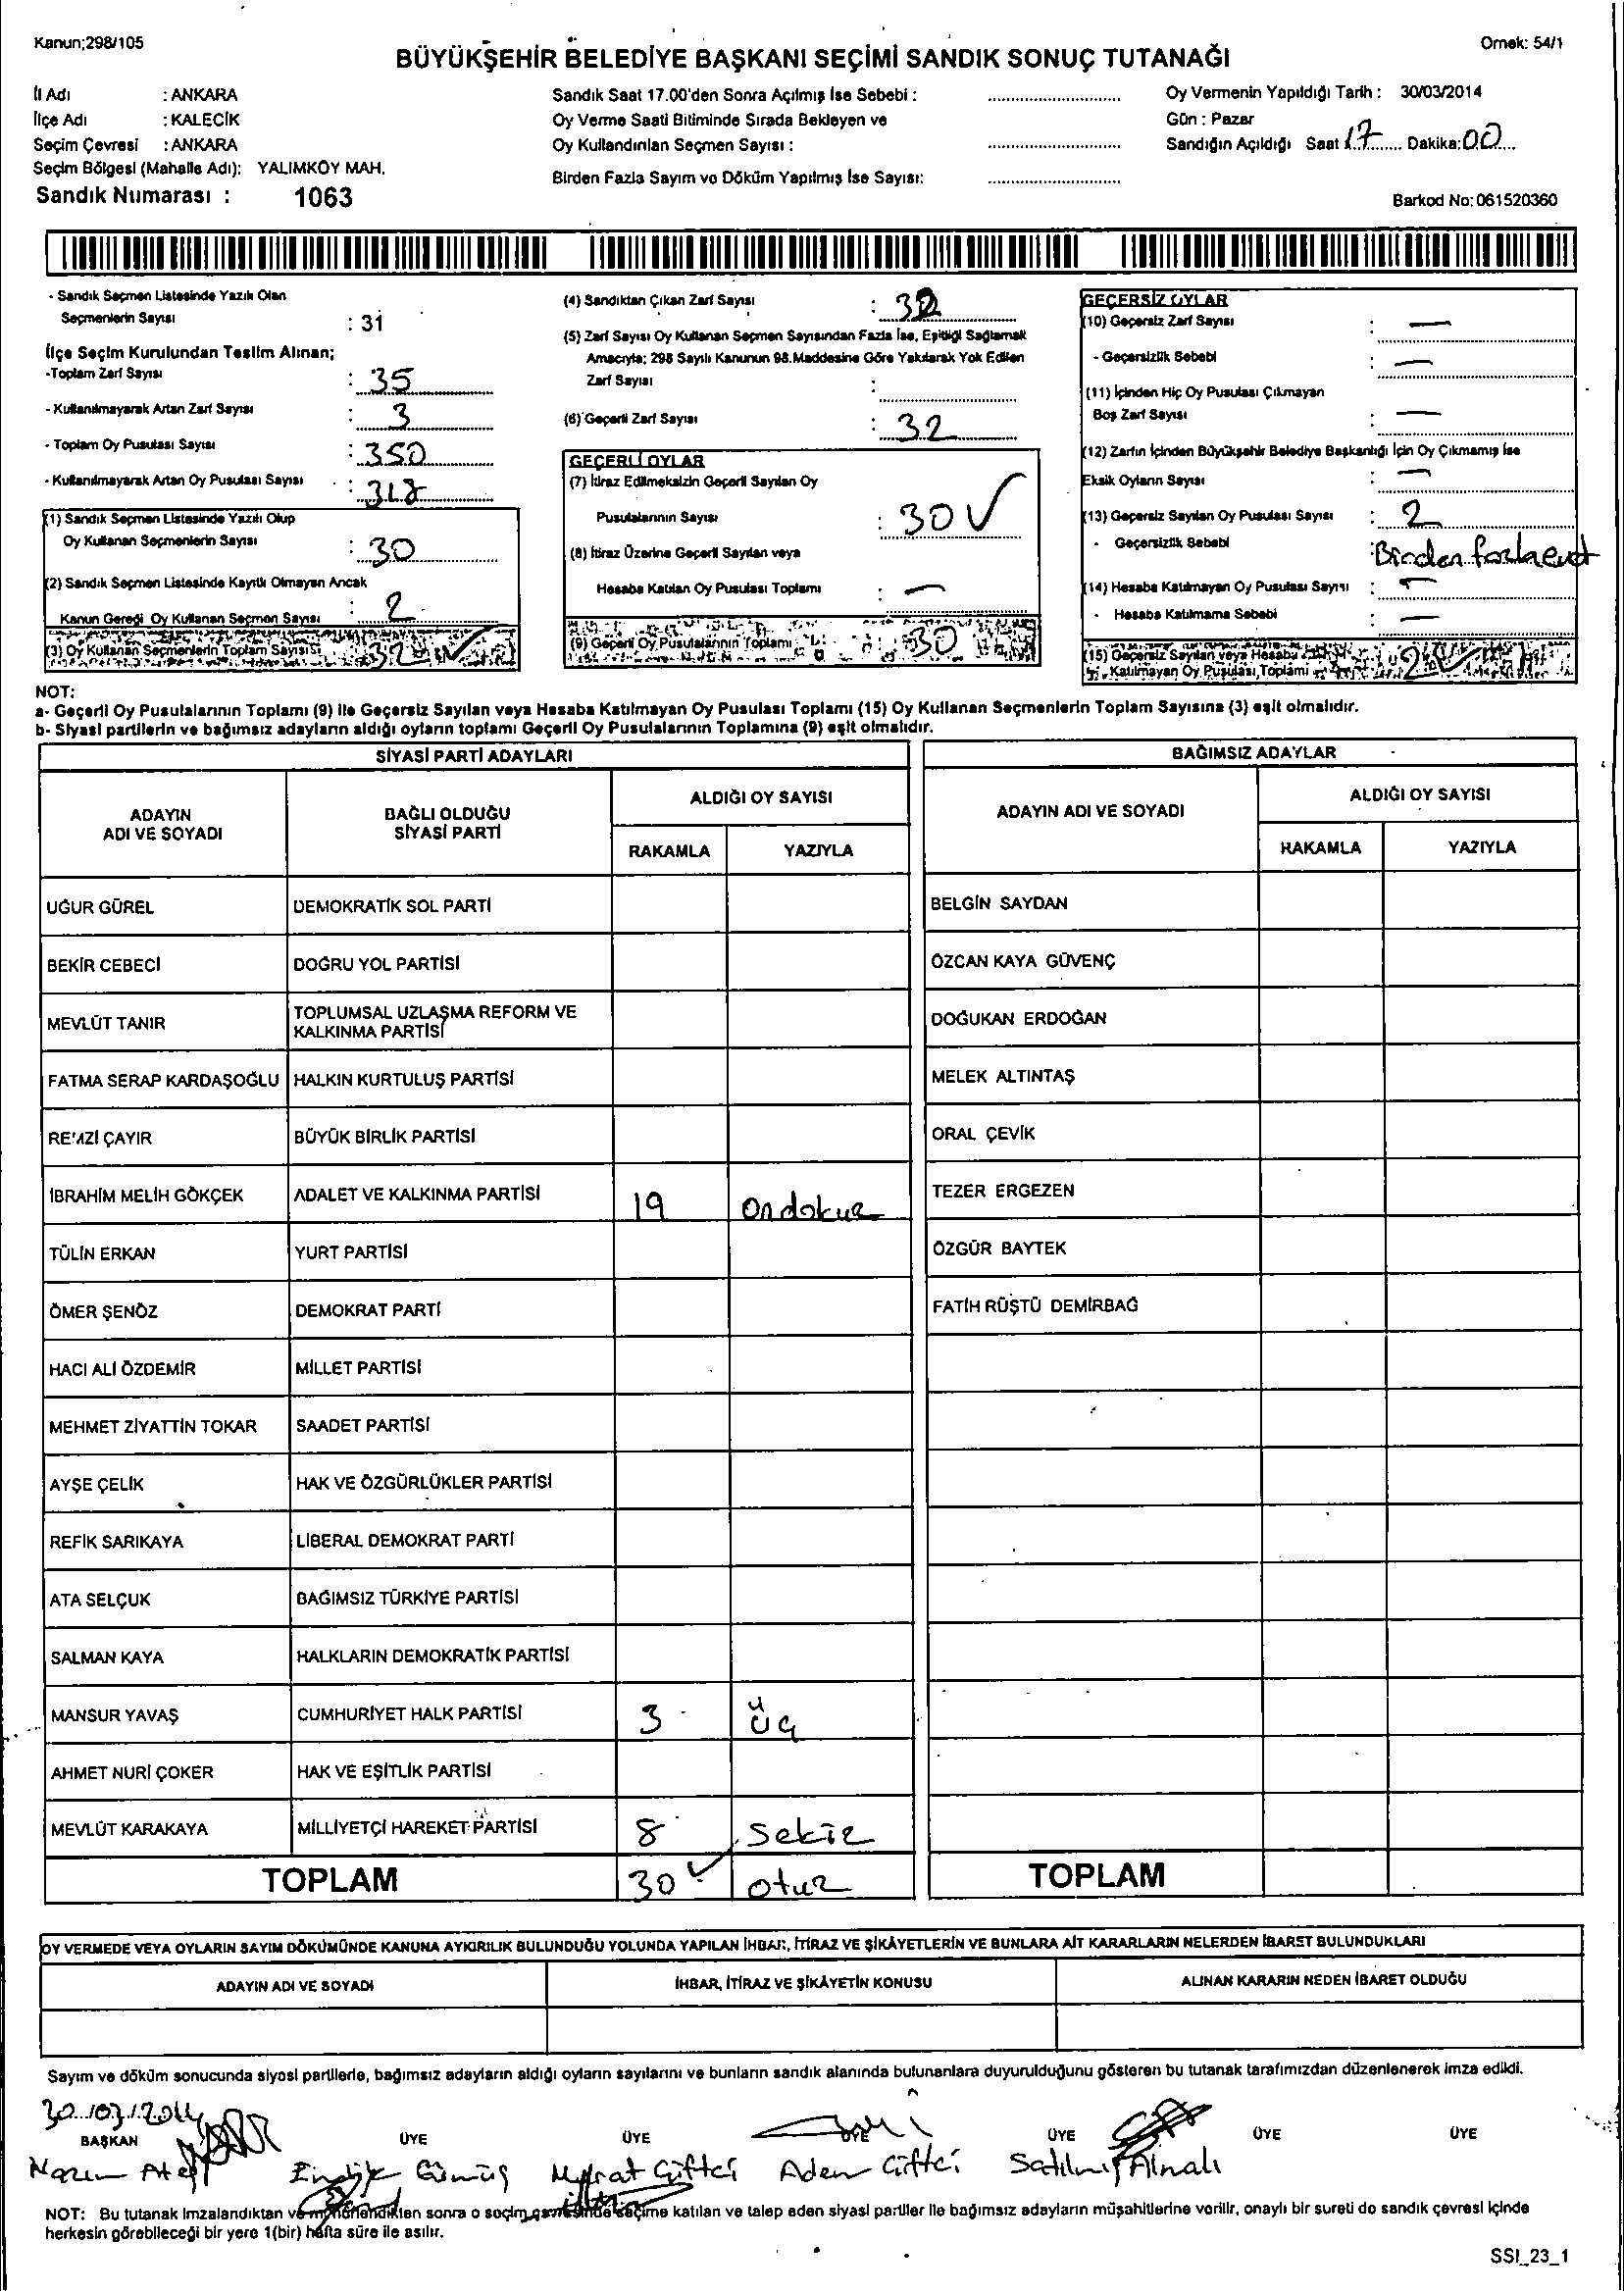 Kanun;298/105
Örnek: 54/1
BÜYÜKŞEHİR BELEDİYE BAŞKANI SEÇİMİ SANDIK SONUÇ TUTANAĞI
İl Adı : ANKARA
İlçe Adı : KALECİK
Seçim Çevresi : ANKARA
Seçim Bölgesi (Mahalle Adı): YALIMKÖY MAH.
Sandık Numarası : 1063
Sandık Saat 17.00'den Sonra Açılmış İse Sebebi :
Oy Verme Saati Bitiminde Sırada Bekleyen ve
Oy Kullandırılan Seçmen Sayısı :
Birden Fazla Sayım ve Döküm Yapılmış İse Sayısı:
Oy Vermenin Yapıldığı Tarih : 30/03/2014
Gün : Pazar
Sandığın Açıldığı Saat 17 Dakika: 00
Barkod No: 061520360
- Sandık Seçmen Listesinde Yazılı Olan
Seçmenlerin Sayısı : 31
İlçe Seçim Kurulundan Teslim Alınan;
-Toplam Zarf Sayısı : 35
- Kullanılmayarak Artan Zarf Sayısı : 3
- Toplam Oy Pusulası Sayısı : 350
- Kullanılmayarak Artan Oy Pusulası Sayısı : 318
(1) Sandık Seçmen Listesinde Yazılı Olup
Oy Kullanan Seçmenlerin Sayısı : 30
(2) Sandık Seçmen Listesinde Kayıtlı Olmayan Ancak
Kanun Gereği Oy Kullanan Seçmen Sayısı : 2
(3) Oy Kullanan Seçmenlerin Toplam Sayısı : 32
(4) Sandıktan Çıkan Zarf Sayısı : 32
(5) Zarf Sayısı Oy Kullanan Seçmen Sayısından Fazla İse, Eşitliği Sağlamak
Amacıyla; 298 Sayılı Kanunun 98.Maddesine Göre Yakılarak Yok Edilen
Zarf Sayısı :
(6) Geçerli Zarf Sayısı : 32
GEÇERLİ OYLAR
(7) İtiraz Edilmeksizin Geçerli Sayılan Oy
Pusulalarının Sayısı : 30 ✓
(8) İtiraz Üzerine Geçerli Sayılan veya
Hesaba Katılan Oy Pusulası Toplamı : —
(9) Geçerli Oy Pusulalarının Toplamı : 30
GEÇERSİZ OYLAR
(10) Geçersiz Zarf Sayısı : —
- Geçersizlik Sebebi : —
(11) İçinden Hiç Oy Pusulası Çıkmayan
Boş Zarf Sayısı : —
(12) Zarfın İçinden Büyükşehir Belediye Başkanlığı İçin Oy Çıkmamış İse
Eksik Oyların Sayısı : —
(13) Geçersiz Sayılan Oy Pusulası Sayısı : 2
- Geçersizlik Sebebi : Birden fazla evet
(14) Hesaba Katılmayan Oy Pusulası Sayısı : —
- Hesaba Katılmama Sebebi : —
(15) Geçersiz Sayılan veya Hesaba
Katılmayan Oy Pusulası Toplamı : 2
NOT:
a- Geçerli Oy Pusulalarının Toplamı (9) ile Geçersiz Sayılan veya Hesaba Katılmayan Oy Pusulası Toplamı (15) Oy Kullanan Seçmenlerin Toplam Sayısına (3) eşit olmalıdır.
b- Siyasi partilerin ve bağımsız adayların aldığı oyların toplamı Geçerli Oy Pusulalarının Toplamına (9) eşit olmalıdır.
SİYASİ PARTİ ADAYLARI
ADAYIN ADI VE SOYADI
BAĞLI OLDUĞU SİYASİ PARTİ
ALDIĞI OY SAYISI
RAKAMLA YAZIYLA
UĞUR GÜREL DEMOKRATİK SOL PARTİ
BEKİR CEBECİ DOĞRU YOL PARTİSİ
MEVLÜT TANIR TOPLUMSAL UZLAŞMA REFORM VE KALKINMA PARTİSİ
FATMA SERAP KARDAŞOĞLU HALKIN KURTULUŞ PARTİSİ
REMZİ ÇAYIR BÜYÜK BİRLİK PARTİSİ
İBRAHİM MELİH GÖKÇEK ADALET VE KALKINMA PARTİSİ 19 Ondokuz
TÜLİN ERKAN YURT PARTİSİ
ÖMER ŞENÖZ DEMOKRAT PARTİ
HACI ALİ ÖZDEMİR MİLLET PARTİSİ
MEHMET ZİYATTİN TOKAR SAADET PARTİSİ
AYŞE ÇELİK HAK VE ÖZGÜRLÜKLER PARTİSİ
REFİK SARIKAYA LİBERAL DEMOKRAT PARTİ
ATA SELÇUK BAĞIMSIZ TÜRKİYE PARTİSİ
SALMAN KAYA HALKLARIN DEMOKRATİK PARTİSİ
MANSUR YAVAŞ CUMHURİYET HALK PARTİSİ 3 Üç
AHMET NURİ ÇOKER HAK VE EŞİTLİK PARTİSİ
MEVLÜT KARAKAYA MİLLİYETÇİ HAREKET PARTİSİ 8 Sekiz
TOPLAM 30 ✓ otuz
BAĞIMSIZ ADAYLAR
ADAYIN ADI VE SOYADI
ALDIĞI OY SAYISI
RAKAMLA YAZIYLA
BELGİN SAYDAN
ÖZCAN KAYA GÜVENÇ
DOĞUKAN ERDOĞAN
MELEK ALTINTAŞ
ORAL ÇEVİK
TEZER ERGEZEN
ÖZGÜR BAYTEK
FATİH RÜŞTÜ DEMİRBAĞ
TOPLAM
OY VERMEDE VEYA OYLARIN SAYIM DÖKÜMÜNDE KANUNA AYKIRILIK BULUNDUĞU YOLUNDA YAPILAN İHBAR, İTİRAZ VE ŞİKÂYETLERİN VE BUNLARA AİT KARARLARIN NELERDEN İBARET BULUNDUKLARI
ADAYIN ADI VE SOYADI
İHBAR, İTİRAZ VE ŞİKÂYETİN KONUSU
ALINAN KARARIN NEDEN İBARET OLDUĞU
Sayım ve döküm sonucunda siyasi partilerle, bağımsız adayların aldığı oyların sayılarını ve bunların sandık alanında bulunanlara duyurulduğunu gösteren bu tutanak tarafımızdan düzenlenerek imza edildi.
30/03/2014
BAŞKAN ÜYE ÜYE ÜYE ÜYE ÜYE ÜYE
Nazım Ateş Gümüş Murat Çiftci Adem Çiftci Satılmış Alnalı
NOT: Bu tutanak imzalandıktan ve mühürlendikten sonra o seçim çevresinde seçime katılan ve talep eden siyasi partiler ile bağımsız adayların müşahitlerine verilir, onaylı bir sureti de sandık çevresi içinde
herkesin görebileceği bir yere 1(bir) hafta süre ile asılır.
SSI_23_1